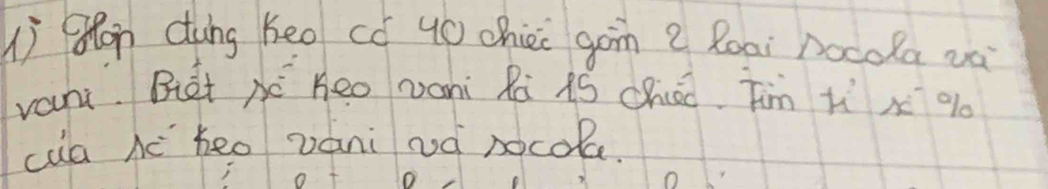 1) Hộp đựng kẹo có 40 chiếc gồm 2 loại socola và
vani. Biết số kẹo vani là 15 chiếc. Tìm tỉ số %
của số kẹo vani và socola.